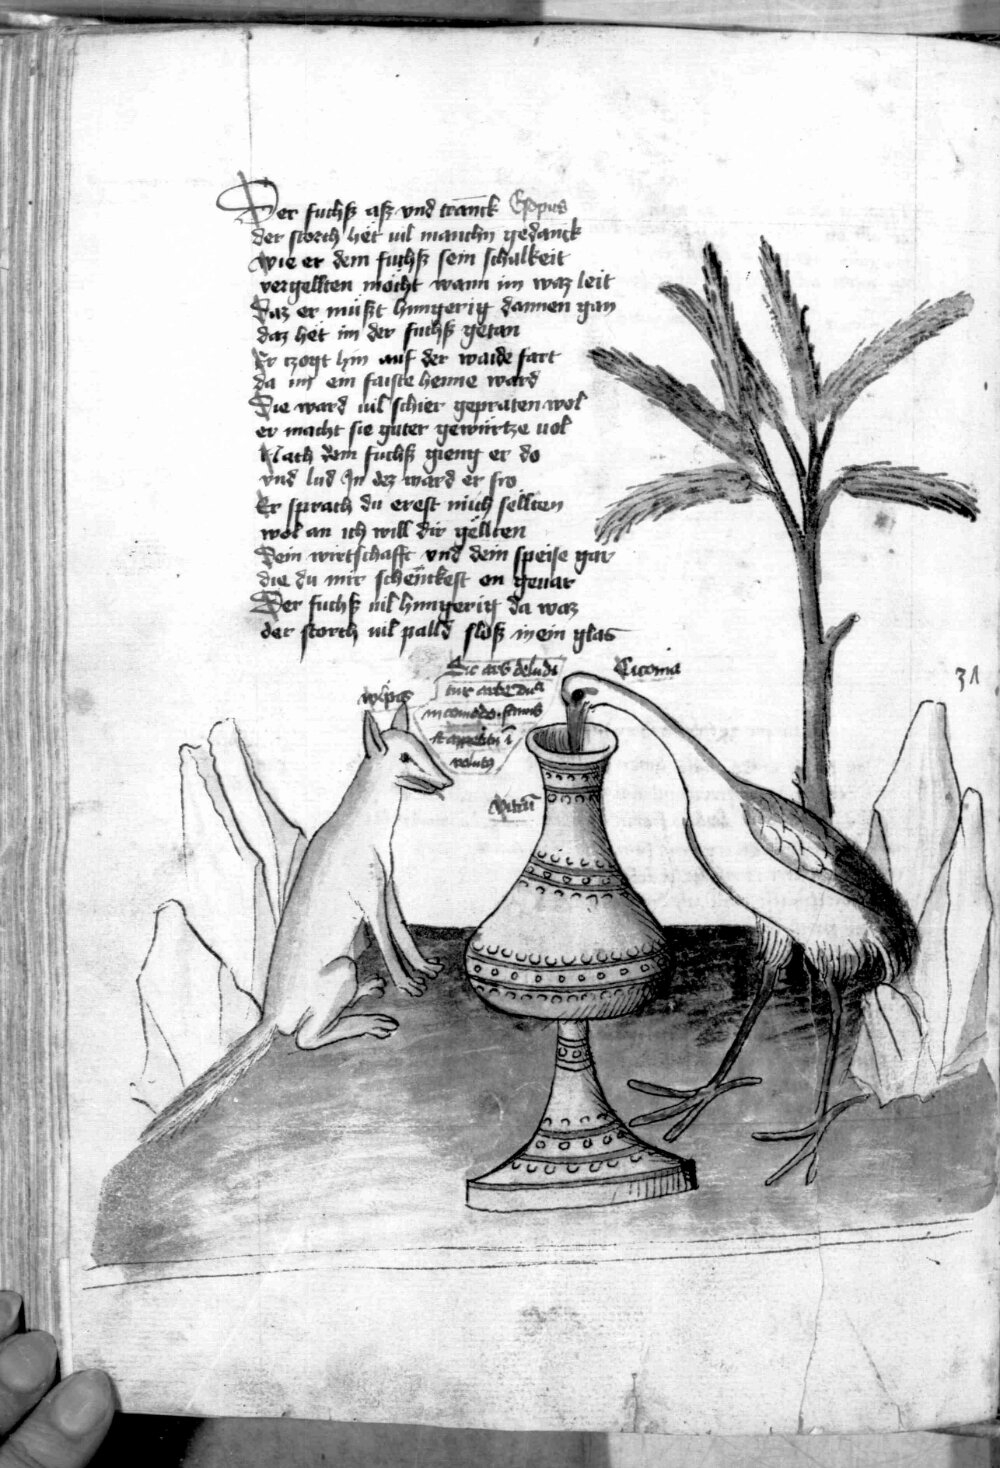 Der fuchß aß vnd tranck Esopus
der storch het vil manchn gedanck
wie er dem fuchß sein schalkeit
vergellten möcht wann im waz leit
Daz er müßt hungerig dannen gan
daz het im der fuchß getan
Er zogt hin auf der waide fart
da im ein faiste henne ward
Die ward vil schier gepraten wol
er macht sie guter gewürtze vol
Nach dem fuchß gieng er do
vnd lud In dez ward er fro
Er sprach du erest mich sellten
wol an ich will dir gellten
Dein wirtschafft vnd dein speise gar
die du mir schenckest on gevar
Der fuchß vil hungerig da waz
der storch vil palld sloß in ein glas
Sic ars deludi
tur arte
Ciconia
wlpes
vitrū
31